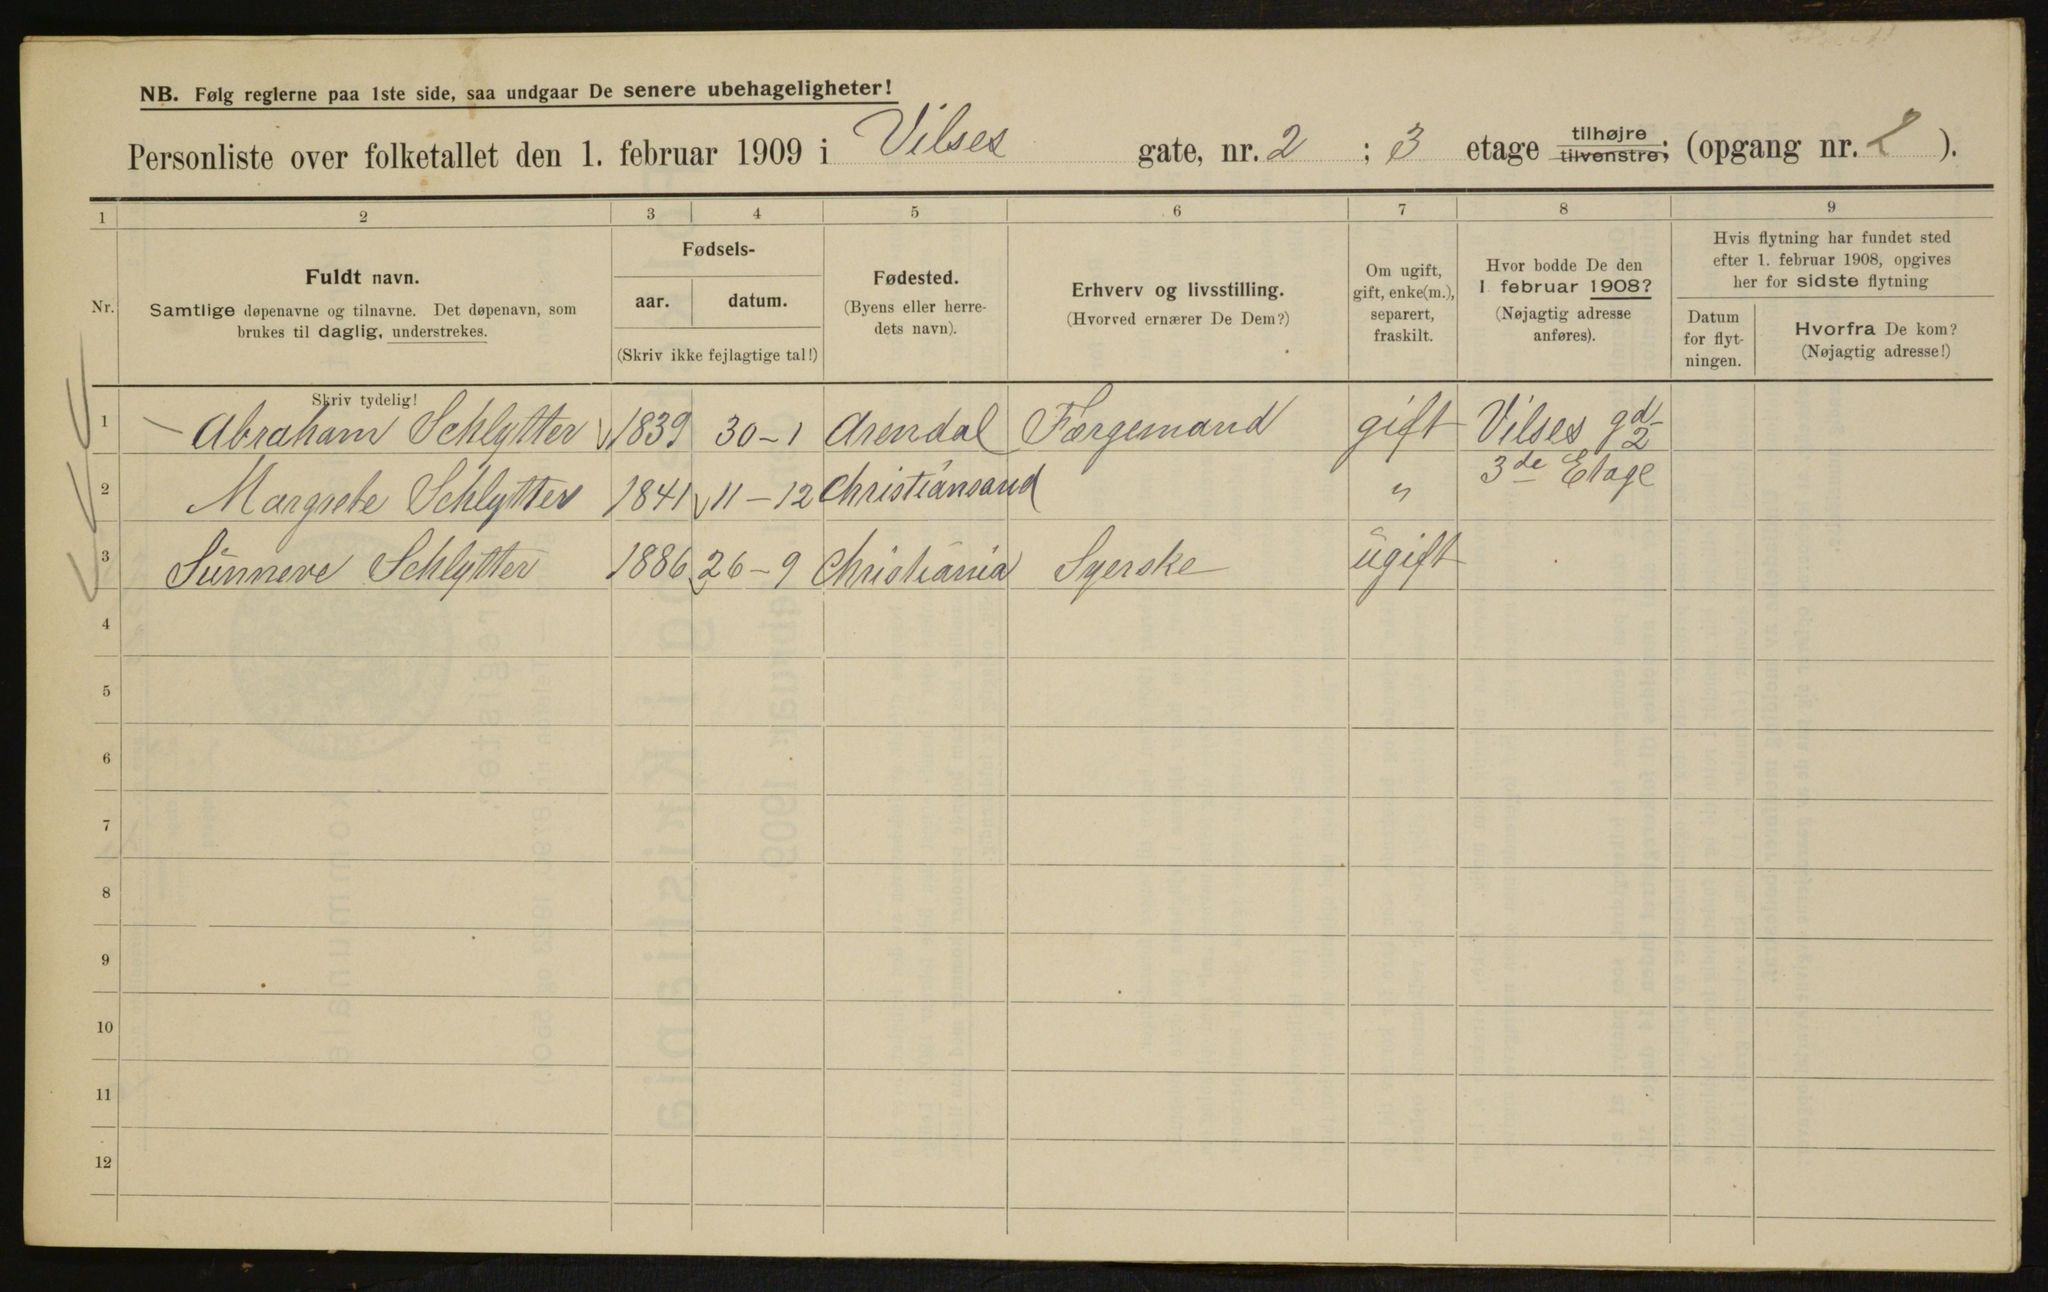 NB. Følg reglerne paa 1ste side, saa undgaar De senere ubehageligheter!
Personliste over folketallet den 1. februar 1909 i Vilses gate, nr. 2 ; 3 etage tilhøjre tilvenstre; (opgang nr. 2 ).
1 2 3 4 5 6 7 8 9
Nr.
Fuldt navn.
Samtlige døpenavne og tilnavne. Det døpenavn, som
brukes til daglig, understrekes.
Fødsels-
aar. datum.
(Skriv ikke fejlagtige tal!)
Fødested.
(Byens eller herre-
dets navn).
Erhverv og livsstilling.
(Hvorved ernærer De Dem?)
Om ugift,
gift, enke(m.),
separert,
fraskilt.
Hvor bodde De den
1 februar 1908?
(Nøjagtig adresse
anføres).
Hvis flytning har fundet sted
efter 1. februar 1908, opgives
her for sidste flytning
Datum
for flyt-
ningen.
Hvorfra De kom?
(Nøjagtig adresse!)
Skriv tydelig!
1 Abraham Schlytter 1839 30-1 Arendal Færgemand gift Vilses gd 2
2 Margrete Schlytter 1841 11-12 Christiansand " 3de Etage
3 Sunneve Schlytter 1886 26-9 Christiania Syerske ugift
4
5
6
7
8
9
10
11
12